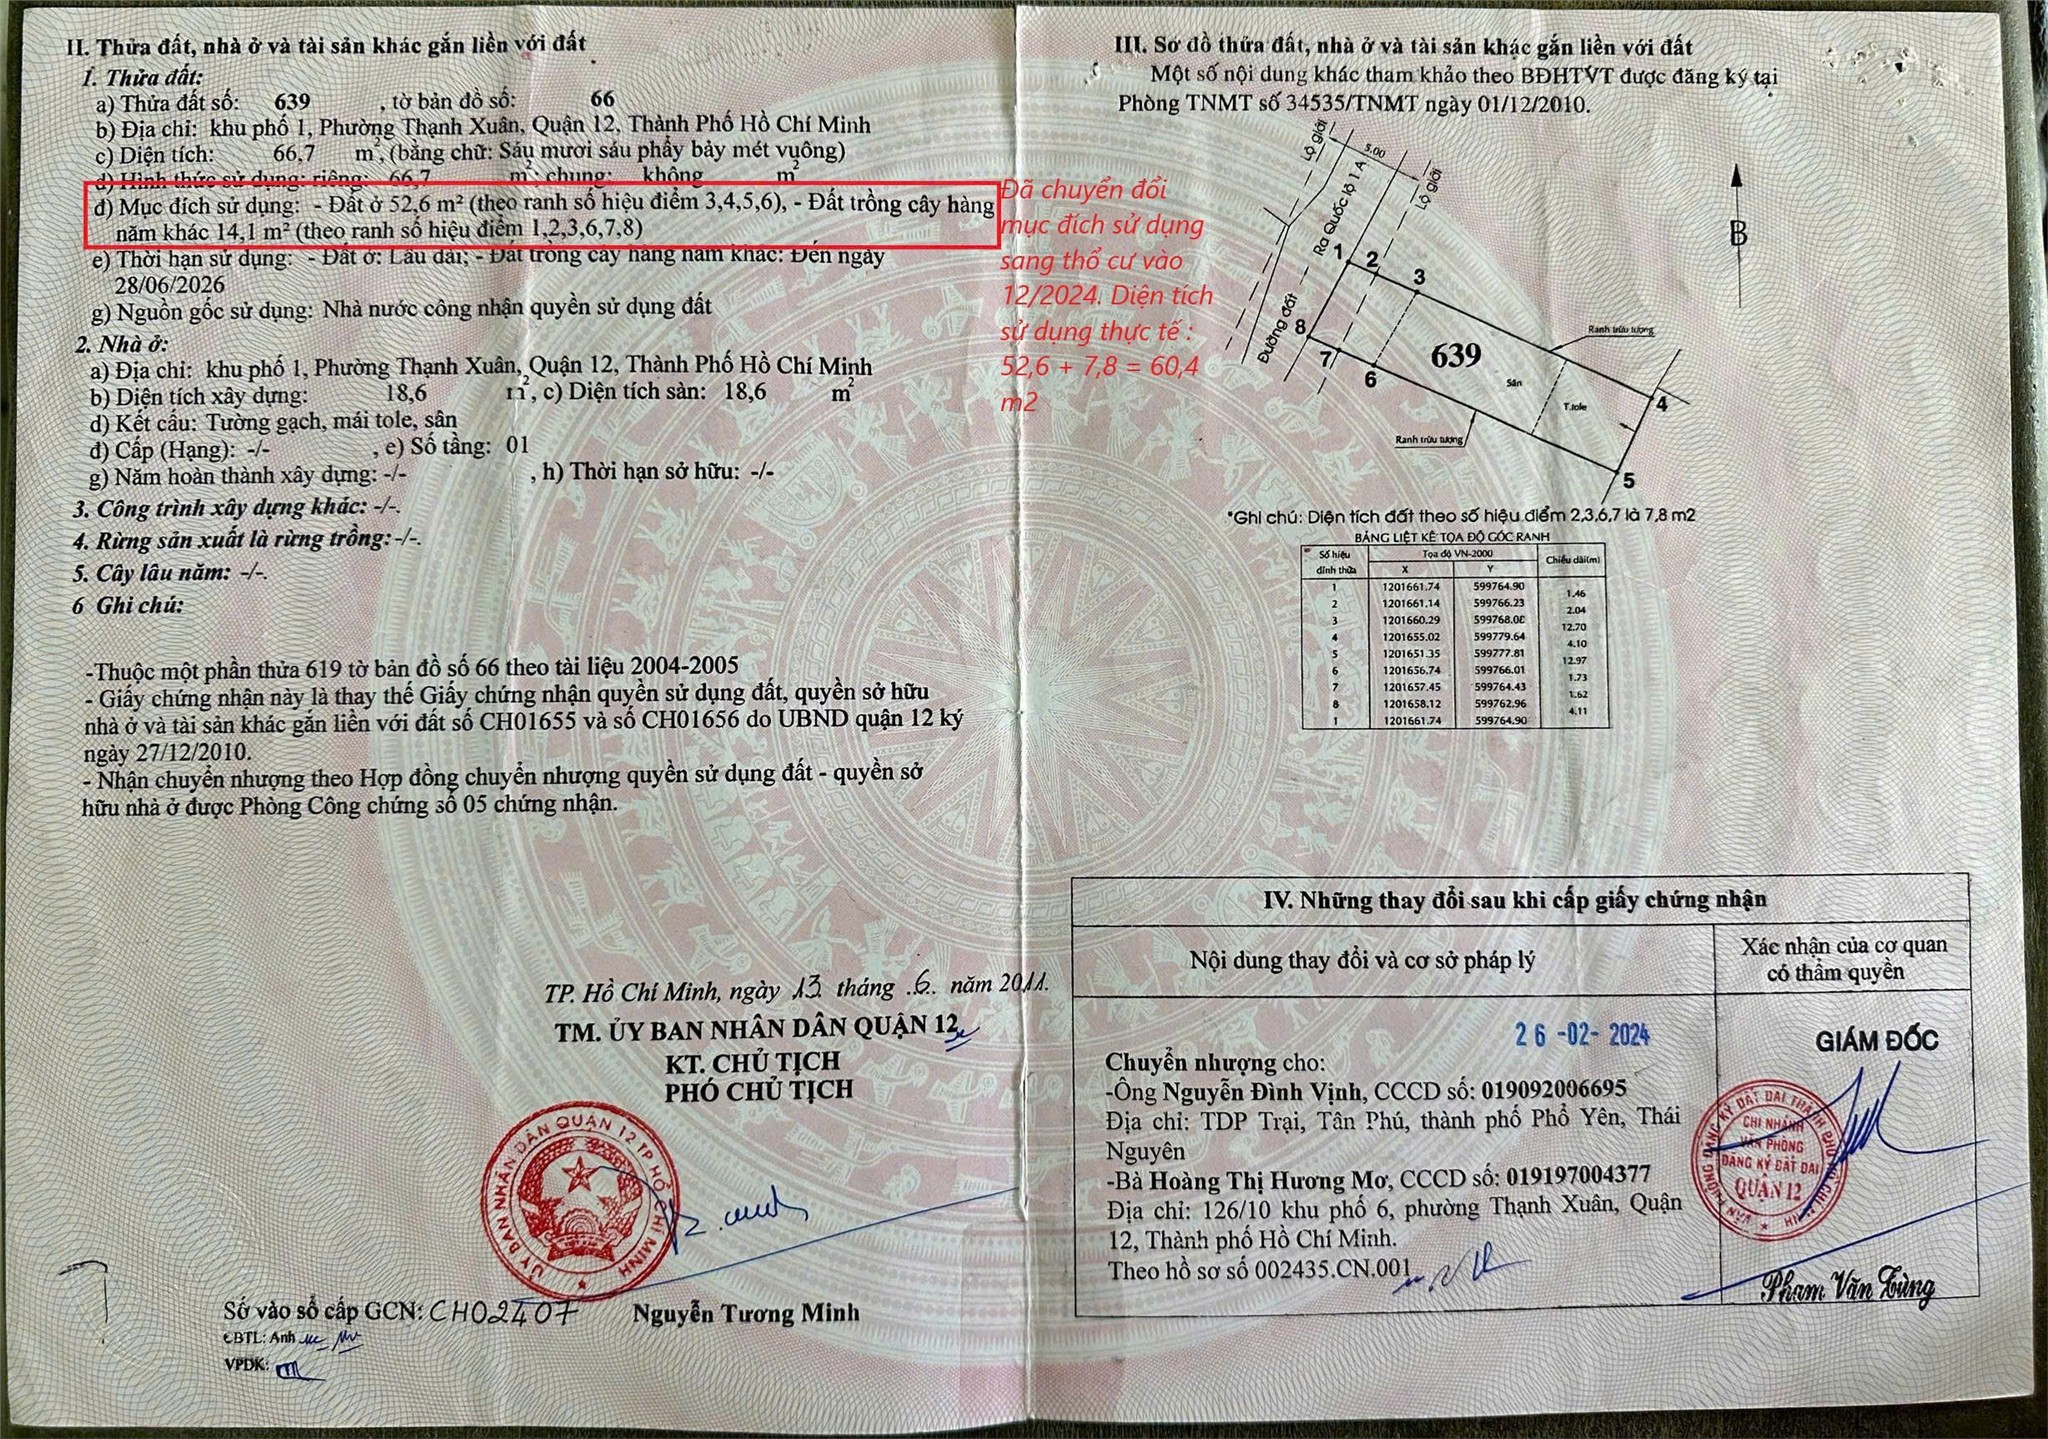 II. Thửa đất, nhà ở và tài sản khác gắn liền với đất
1. Thửa đất:
a) Thửa đất số: 639 , tờ bản đồ số: 66
b) Địa chỉ: khu phố 1, Phường Thạnh Xuân, Quận 12, Thành Phố Hồ Chí Minh
c) Diện tích: 66,7 m², (bằng chữ: Sáu mươi sáu phẩy bảy mét vuông)
d) Hình thức sử dụng: riêng: 66,7 m²; chung: không m²
đ) Mục đích sử dụng: - Đất ở 52,6 m² (theo ranh số hiệu điểm 3,4,5,6), - Đất trồng cây hàng
năm khác 14,1 m² (theo ranh số hiệu điểm 1,2,3,6,7,8)
e) Thời hạn sử dụng: - Đất ở: Lâu dài; - Đất trồng cây hàng năm khác: Đến ngày
28/06/2026
g) Nguồn gốc sử dụng: Nhà nước công nhận quyền sử dụng đất
2. Nhà ở:
a) Địa chỉ: khu phố 1, Phường Thạnh Xuân, Quận 12, Thành Phố Hồ Chí Minh
b) Diện tích xây dựng: 18,6 m², c) Diện tích sàn: 18,6 m²
d) Kết cấu: Tường gạch, mái tole, sân
đ) Cấp (Hạng): -/- , e) Số tầng: 01
g) Năm hoàn thành xây dựng: -/- , h) Thời hạn sở hữu: -/-
3. Công trình xây dựng khác: -/-.
4. Rừng sản xuất là rừng trồng:-/-.
5. Cây lâu năm: -/-.
6 Ghi chú:
-Thuộc một phần thửa 619 tờ bản đồ số 66 theo tài liệu 2004-2005
- Giấy chứng nhận này là thay thế Giấy chứng nhận quyền sử dụng đất, quyền sở hữu
nhà ở và tài sản khác gắn liền với đất số CH01655 và số CH01656 do UBND quận 12 ký
ngày 27/12/2010.
- Nhận chuyển nhượng theo Hợp đồng chuyển nhượng quyền sử dụng đất - quyền sở
hữu nhà ở được Phòng Công chứng số 05 chứng nhận.
TP. Hồ Chí Minh, ngày 13 tháng .6. năm 2011.
TM. ỦY BAN NHÂN DÂN QUẬN 12
KT. CHỦ TỊCH
PHÓ CHỦ TỊCH
ỦY BAN NHÂN DÂN QUẬN 12 TP HỒ CHÍ MINH
Nguyễn Tương Minh
Số vào sổ cấp GCN: CH02407
CBTL: Anh
VPĐK:
Đã chuyển đổi
mục đích sử dụng
sang thổ cư vào
12/2024. Diện tích
sử dụng thực tế :
52,6 + 7,8 = 60,4
m2
III. Sơ đồ thửa đất, nhà ở và tài sản khác gắn liền với đất
Một số nội dung khác tham khảo theo BĐHTVT được đăng ký tại
Phòng TNMT số 34535/TNMT ngày 01/12/2010.
Lộ giới
5.00
Lộ giới
Ra Quốc lộ 1 A
Đường đất
B
1
2
3
4
5
6
7
8
639
Sân
T.tole
Ranh trừu tượng
Ranh trừu tượng
*Ghi chú: Diện tích đất theo số hiệu điểm 2,3,6,7 là 7,8 m2
BẢNG LIỆT KÊ TỌA ĐỘ GÓC RANH
Số hiệu đỉnh thửa Tọa độ VN-2000 Chiều dài(m)
X Y
1 1201661.74 599764.90
1.46
2 1201661.14 599766.23
2.04
3 1201660.29 599768.08
12.70
4 1201655.02 599779.64
4.10
5 1201651.35 599777.81
12.97
6 1201656.74 599766.01
1.73
7 1201657.45 599764.43
1.62
8 1201658.12 599762.96
4.11
1 1201661.74 599764.90
IV. Những thay đổi sau khi cấp giấy chứng nhận
Nội dung thay đổi và cơ sở pháp lý
Xác nhận của cơ quan
có thẩm quyền
26-02-2024
Chuyển nhượng cho:
-Ông Nguyễn Đình Vịnh, CCCD số: 019092006695
Địa chỉ: TDP Trại, Tân Phú, thành phố Phổ Yên, Thái
Nguyên
-Bà Hoàng Thị Hương Mơ, CCCD số: 019197004377
Địa chỉ: 126/10 khu phố 6, phường Thạnh Xuân, Quận
12, Thành phố Hồ Chí Minh.
Theo hồ sơ số 002435.CN.001
GIÁM ĐỐC
CHI NHÁNH
VĂN PHÒNG
ĐĂNG KÝ ĐẤT ĐAI
QUẬN 12
Phạm Văn Tùng